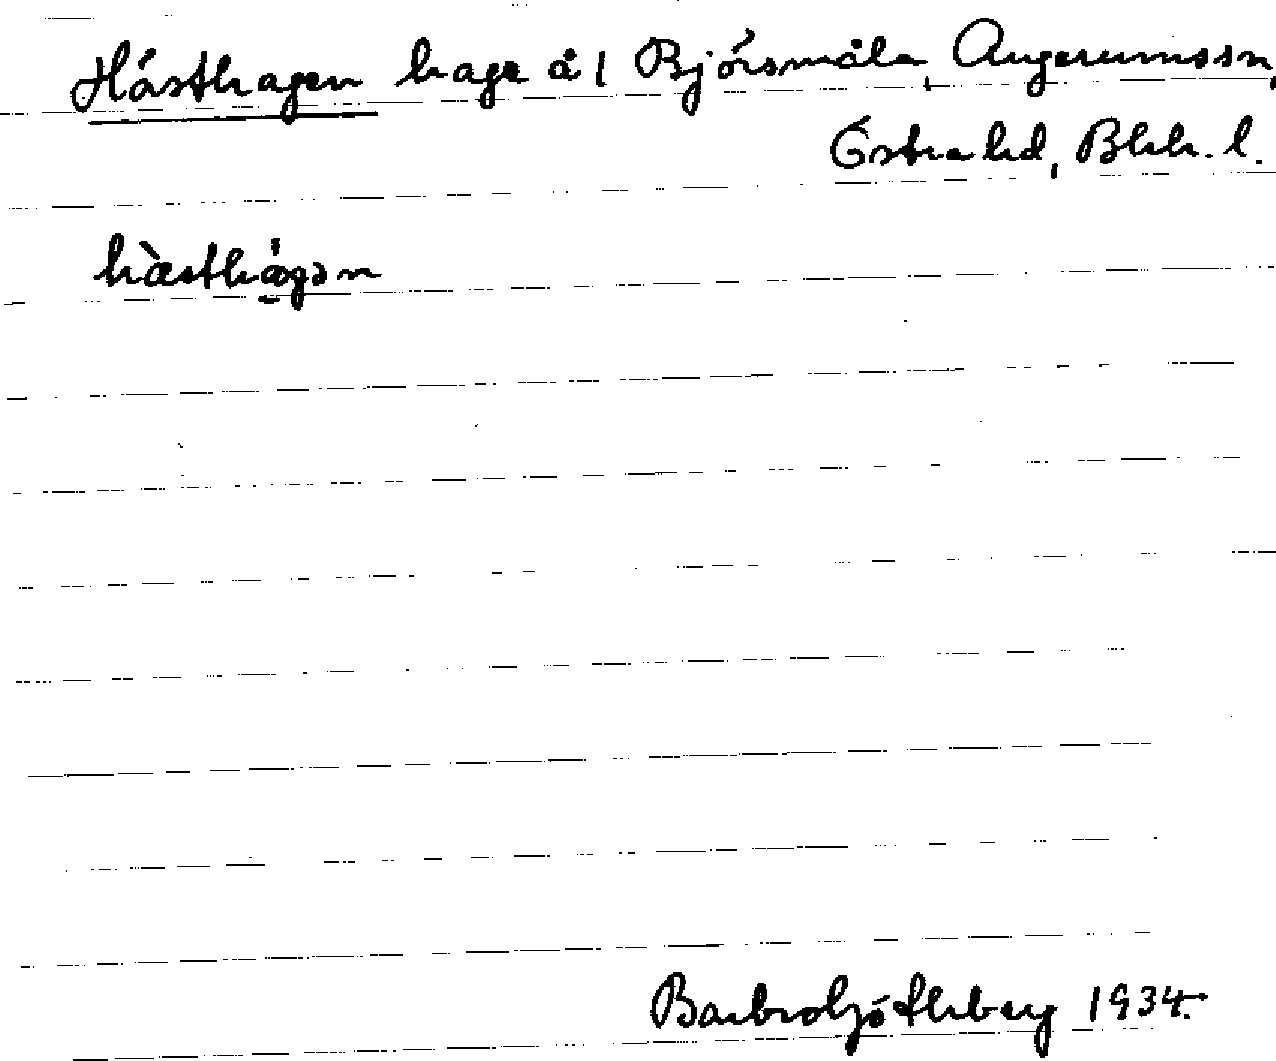 Hästhagen hage å 1 Björsmåla, Augerumssn,
Östra hd, Blek. l.
hàsthágən
Barbro Götherberg 1934.